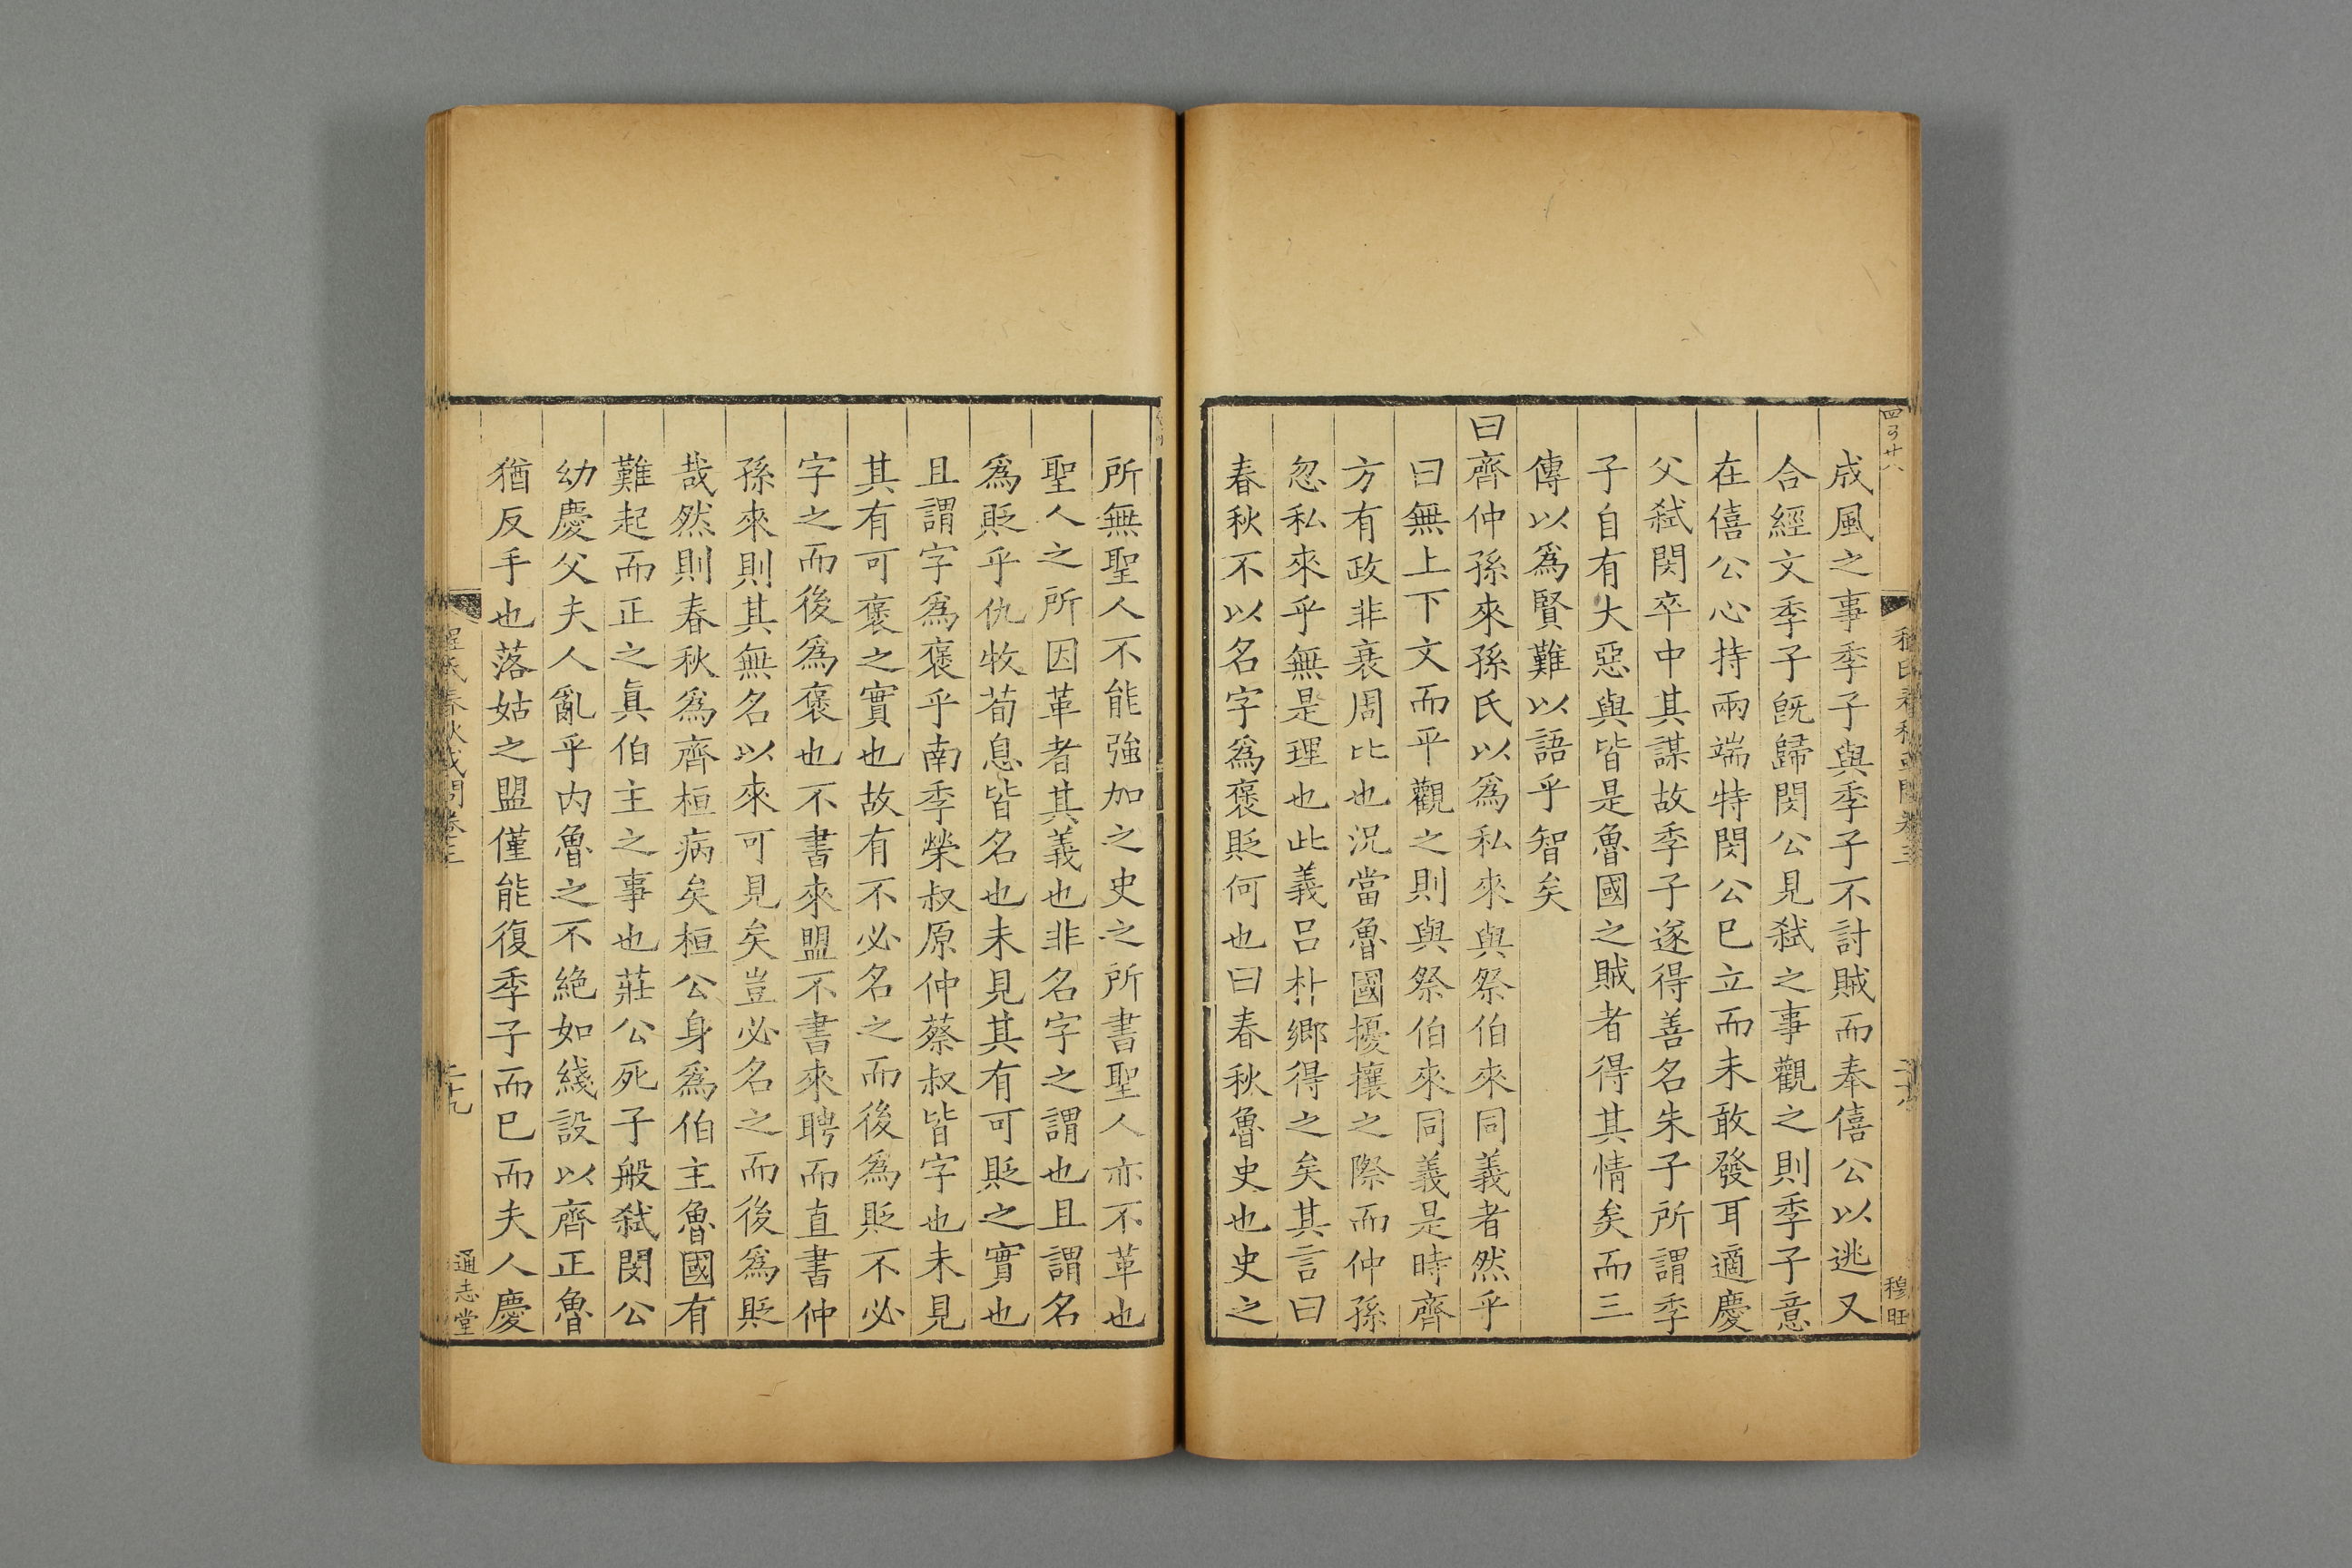 成風之事季子與季子不討賊而奉僖公以逃又
合經文季子旣歸閔公見弑之事觀之則季子意
在僖公心持兩端特閔公已立而未敢發耳適慶
父弑閔卒中其謀故季子遂得善名朱子所謂季
子自有大惡與皆是魯國之賊者得其情矣而三
傳以爲賢難以語乎智矣
曰齊仲孫來孫氏以爲私來與祭伯來同義者然乎
曰無上下文而平觀之則與祭伯來同義是時齊
方有政非衰周比也況當魯國擾攘之際而仲孫
忽私來乎無是理也此義呂朴鄉得之矣其言曰
春秋不以名字爲褒貶何也曰春秋魯史也史之
穆旺
所無聖人不能強加之史之所書聖人亦不革也
聖人之所因革者其義也非名字之謂也且謂名
爲貶乎仇牧荀息皆名也未見其有可貶之實也
且謂字爲褒乎南季榮叔原仲蔡叔皆字也未見
其有可褒之實也故有不必名之而後爲貶不必
字之而後爲褒也不書來盟不書來聘而直書仲
孫來則其無名以來可見矣豈必名之而後爲貶
哉然則春秋爲齊桓病矣桓公身爲伯主魯國有
難起而正之眞伯主之事也莊公死子般弑閔公
幼慶父夫人亂乎内魯之不絶如綫設以齊正魯
猶反手也落姑之盟僅能復季子而已而夫人慶
程氏春秋或問卷三
二十九
通志堂